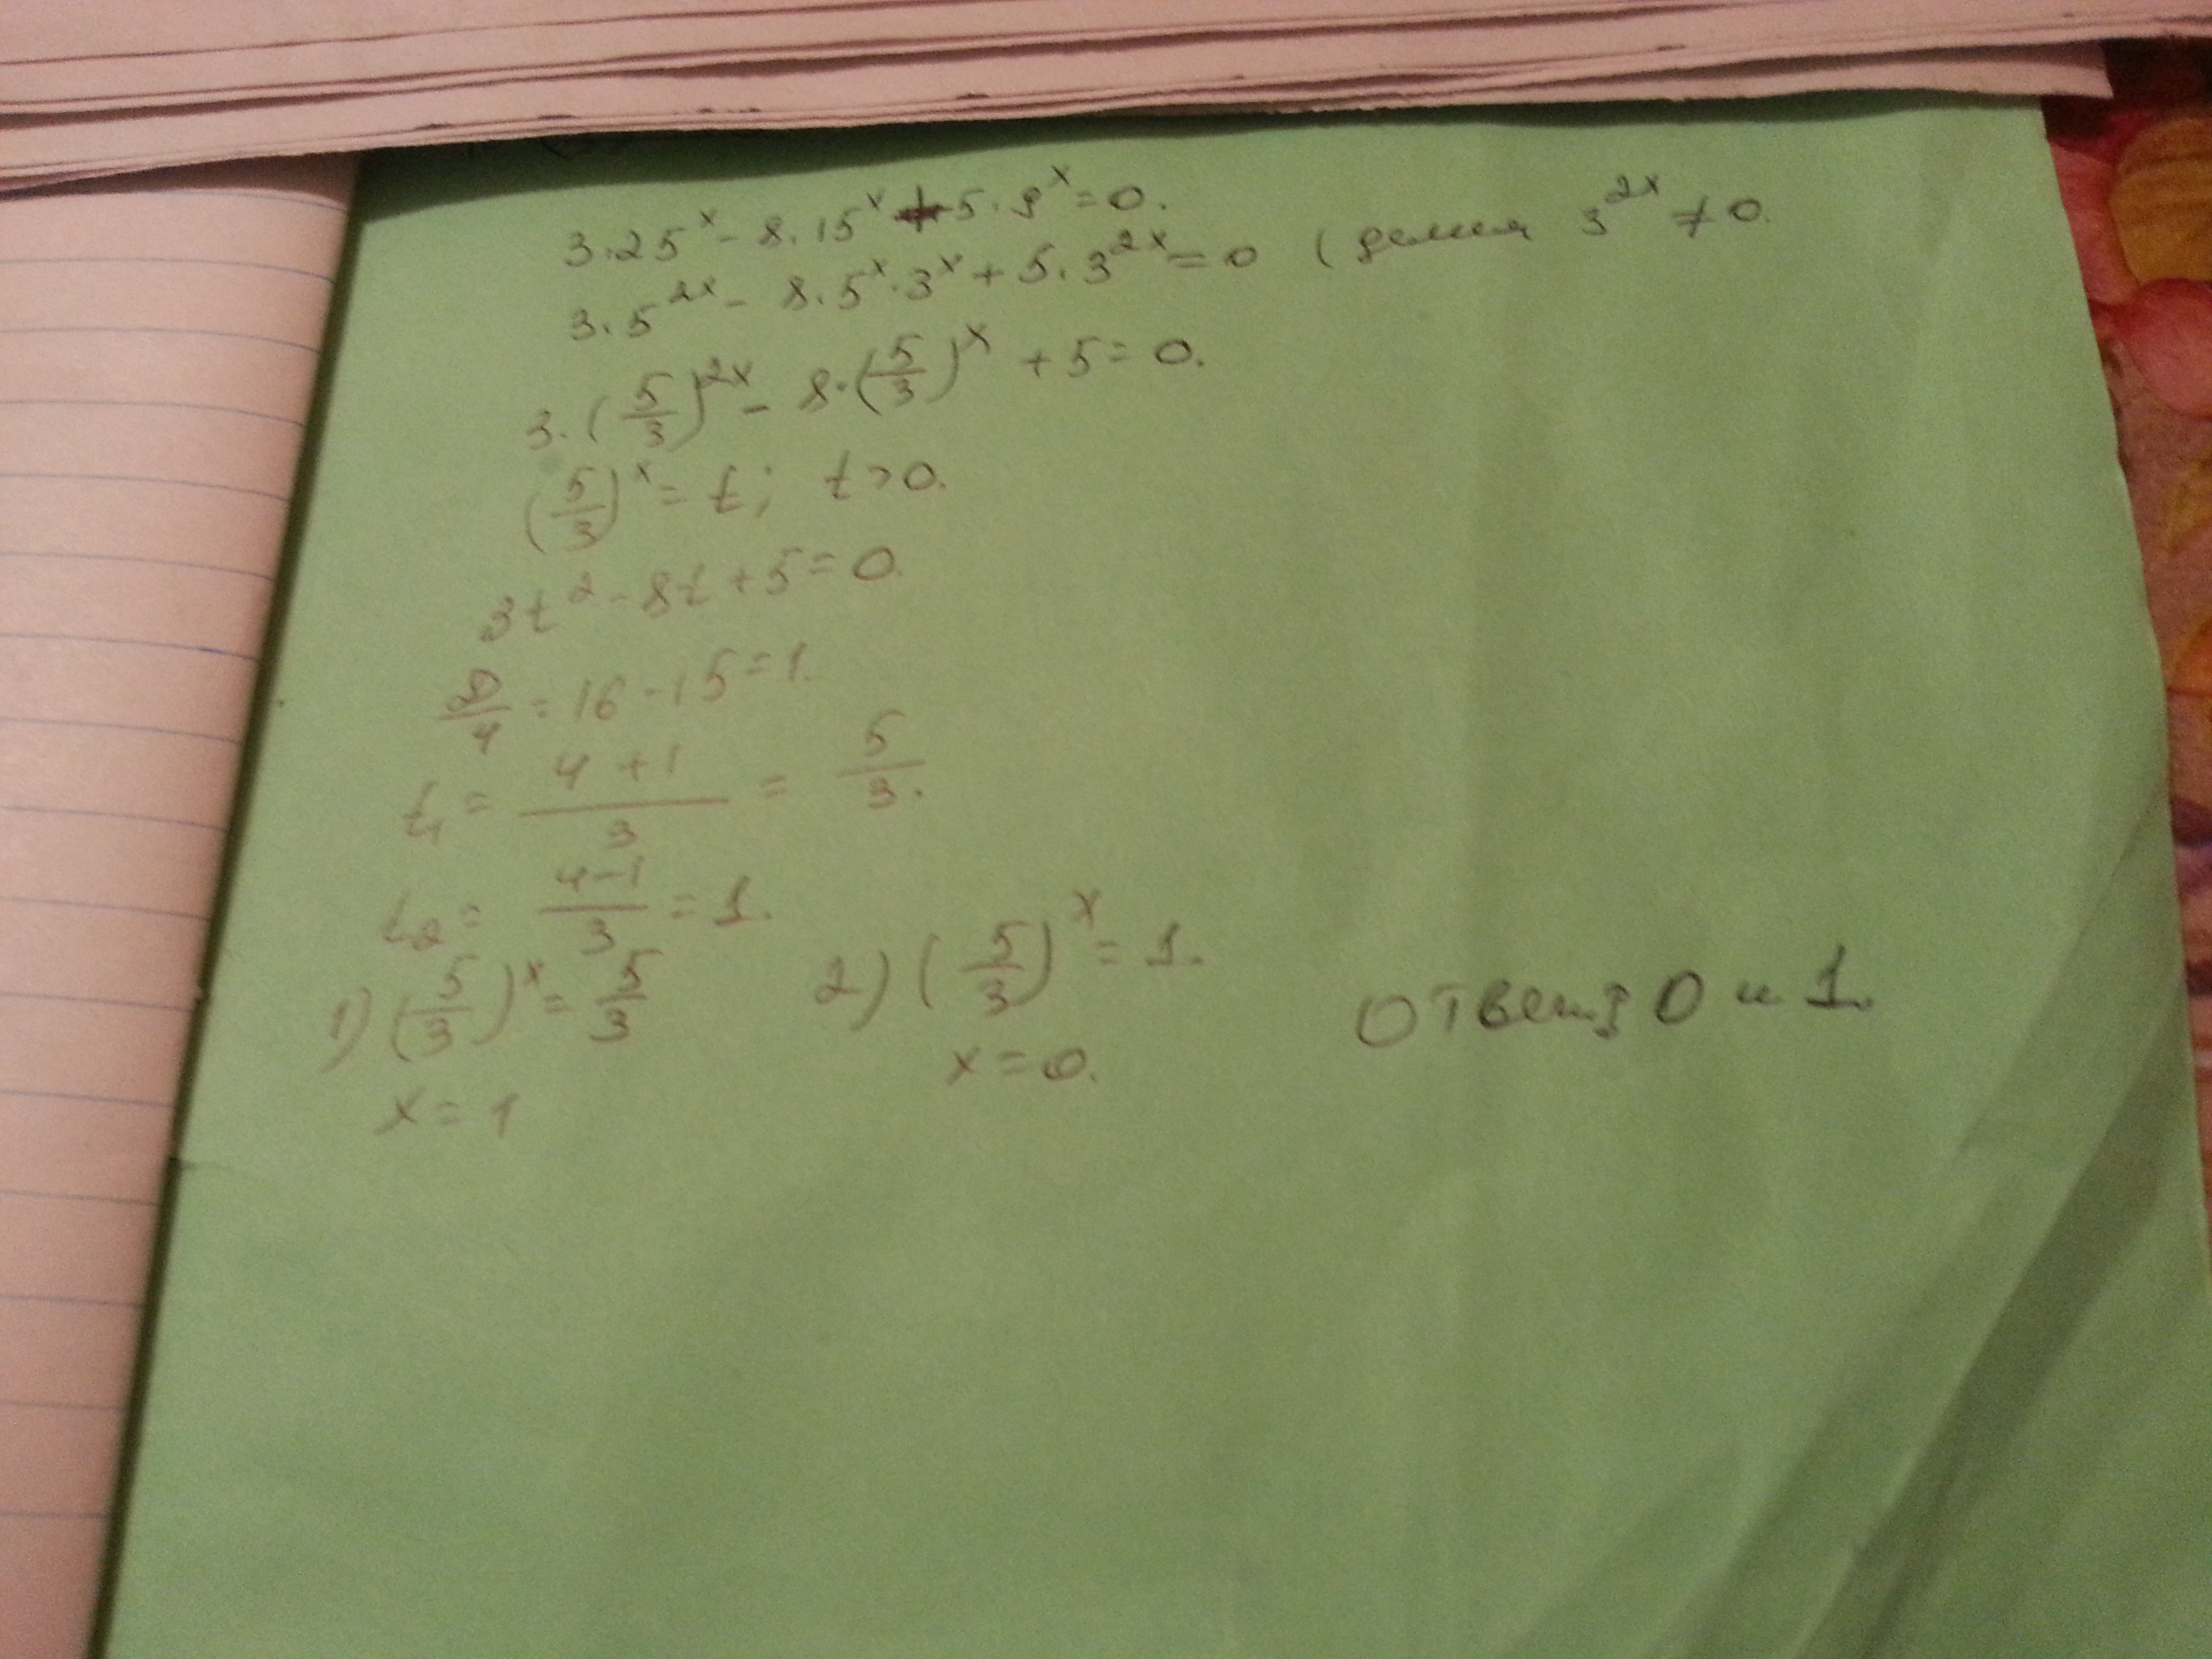 3·25^x - 8·15^x + 5·9^x = 0.
3·5^{2x} - 8·5^x·3^x + 5·3^{2x} = 0 (делим 3^{2x} ≠ 0.
3·(5/3)^{2x} - 8·(5/3)^x + 5 = 0.
(5/3)^x = t; t > 0.
3t² - 8t + 5 = 0.
D/4 = 16 - 15 = 1.
t₁ = (4 + 1)/3 = 5/3.
t₂ = (4 - 1)/3 = 1.
1) (5/3)^x = 5/3 2) (5/3)^x = 1. Ответ: 0 и 1.
x = 1 x = 0.